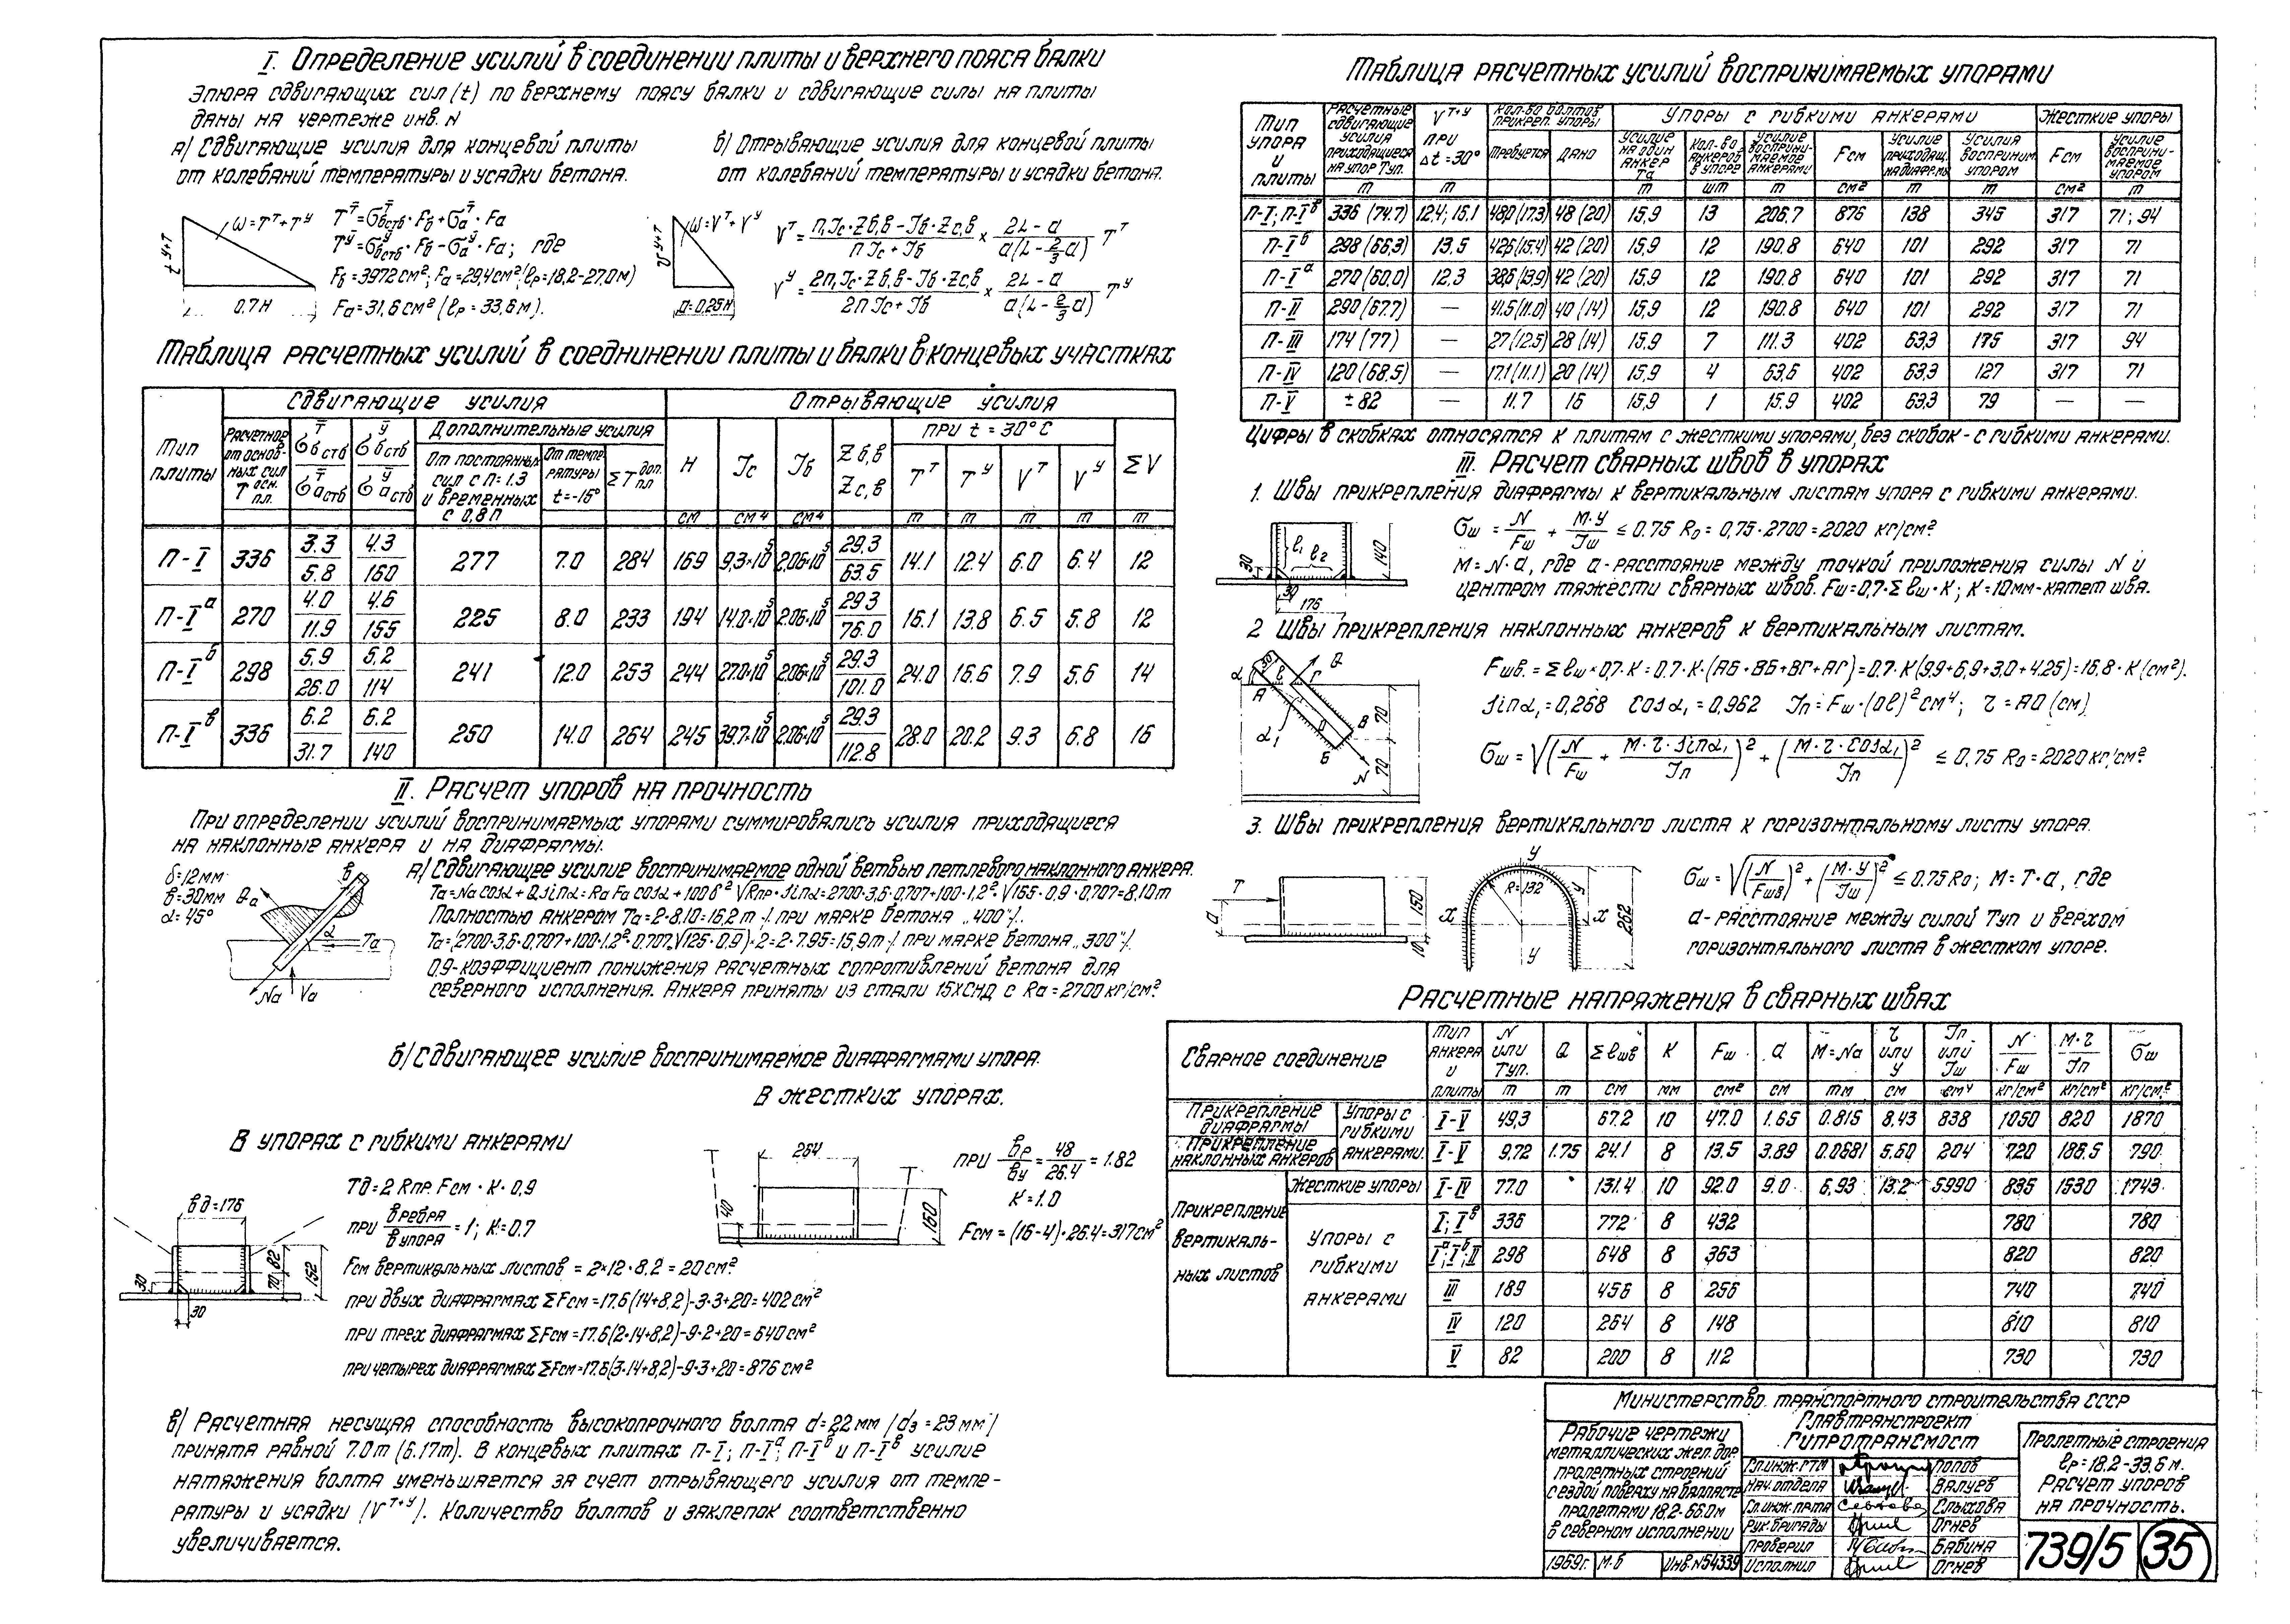 I. Определение усилий в соединении плиты и верхнего пояса балки
Эпюра сдвигающих сил (t) по верхнему поясу балки и сдвигающие силы на плиты
даны на чертеже инв. N
а) Сдвигающие усилия для концевой плиты
от колебаний температуры и усадки бетона.
б) Отрывающие усилия для концевой плиты
от колебаний температуры и усадки бетона.
ω=Tᵀ+Tʸ
0,7H
Fб=3972см²; Fа=29,4см² (ℓр=18,2-27,0м)
Fа=31,6см² (ℓр=33,6м).
ω=Vᵀ+Vʸ
а=0,25H
Таблица расчетных усилий в соеднинении плиты и балки в концевых участках
Тип плиты | Сдвигающие усилия | Отрывающие усилия
Расчетное от основных сил T осн. пл. | Дополнительные усилия | при t=30°С
От постоянных сил с п=1.3 и временных с 0,8п | От температуры t=-15° | ΣT доп. пл | H | Jс | Jб | Zб,в Zс,в | Tᵀ | Tʸ | Vᵀ | Vʸ | ΣV
см | см⁴ | см⁴ | т | т | т | т | т
П-I | 336 | 3.3/5.8 | 4.3/160 | 277 | 7.0 | 284 | 169 | 9,3×10⁵ | 2,06×10⁵ | 29.3/63.5 | 14.1 | 12.4 | 6.0 | 6.4 | 12
П-Iᵃ | 270 | 4.0/11.9 | 4.6/155 | 225 | 8.0 | 233 | 194 | 14.0×10⁵ | 2.06×10⁵ | 29.3/76.0 | 16.1 | 13.8 | 6.5 | 5.8 | 12
П-Iᵇ | 298 | 5.9/26.0 | 5.2/114 | 241 | 12.0 | 253 | 244 | 27.0×10⁵ | 2.06×10⁵ | 29.3/101.0 | 24.0 | 16.6 | 7.9 | 5.6 | 14
П-Iᵛ | 336 | 6.2/31.7 | 6.2/140 | 250 | 14.0 | 264 | 245 | 39.7×10⁵ | 2.06×10⁵ | 29.3/112.8 | 28.0 | 20.2 | 9.3 | 6.8 | 16
II. Расчет упоров на прочность
При определении усилий воспринимаемых упорами суммировались усилия приходящиеся
на наклонные анкера и на диафрагмы.
δ=12мм
в=30мм
α=45°
Qа
Tа
Nа
Vа
а) Сдвигающее усилие воспринимаемое одной ветвью петлевого наклонного анкера.
Tа=Nа cosα+Q sinα=Rа Fа cosα+100δ²√Rпр·sinα=2700·3,6·0,707+100·1,2²·√165·0,9·0,707=8,10т
Полностью анкером Tа=2·8.10=16,2т /при марке бетона „400"/.
Tа=(2700·3,6·0,707+100·1,2²·0,707·√125·0,9)·2=2·7.95=15,9т /при марке бетона „300"/.
0,9-коэффициент понижения расчетных сопротивлений бетона для
северного исполнения. Анкера приняты из стали 15ХСНД с Rа=2700кг/см²
б) Сдвигающее усилие воспринимаемое диафрагмами упора.
В жестких упорах.
В упорах с гибкими анкерами
264
40
160
при вр/ву=48/26.4=1.82
К=1.0
Fсм=(16-4)·26.4=317см²
Tд=2 Rпр. Fсм·К·0,9
при в ребра/в упора=1; К=0.7
вд=176
30
30
70 82
152
Fсм вертикальных листов = 2×12·8,2=20см².
при двух диафрагмах ΣFсм=17.6(14+8,2)-3·3+20=402см²
при трех диафрагмах ΣFсм=17.6(2·14+8,2)-9·2+20=640см²
при четырех диафрагмах ΣFсм=17.6(3·14+8,2)-9·3+20=876см²
в) Расчетная несущая способность высокопрочного болта d=22мм (dз=23мм)
принята равной 7.0т (6.17т). В концевых плитах П-I; П-Iᵃ; П-Iᵇ и П-Iᵛ усилие
натяжения болта уменьшается за счет отрывающего усилия от темпе-
ратуры и усадки (Vᵀ⁺ʸ). Количество болтов и заклепок соответственно
увеличивается.
Таблица расчетных усилий воспринимаемых упорами
Тип упора и плиты | Расчетные сдвигающие усилия приходящиеся на упор Tуп. | Vᵀ⁺ʸ при Δt=30° | Кол-во болтов прикреп. упоры | Упоры с гибкими анкерами | Жесткие упоры
Требуется | Дано | Усилие на один анкер Tа | Кол-во анкеров в упоре | Усилие воспринимаемое анкерами | Fсм | Усилие приходящ. на диафрагмы | Усилия восприним. упором | Fсм | Усилие воспринимаемое упором
т | т | т | шт | т | см² | т | т | см² | т
П-I; П-Iᵛ | 336 (74.7) | 12,4; 16,1 | 48,0 (17.3) | 48 (20) | 15,9 | 13 | 206.7 | 876 | 138 | 345 | 317 | 71; 94
П-Iᵇ | 298 (66,3) | 13,5 | 42,6 (15,4) | 42 (20) | 15,9 | 12 | 190.8 | 640 | 101 | 292 | 317 | 71
П-Iᵃ | 270 (60.0) | 12.3 | 38,6 (13,9) | 42 (20) | 15,9 | 12 | 190.8 | 640 | 101 | 292 | 317 | 71
П-II | 290 (67.7) | — | 41.5 (11.0) | 40 (14) | 15,9 | 12 | 190.8 | 640 | 101 | 292 | 317 | 71
П-III | 174 (77) | — | 27 (12.5) | 28 (14) | 15,9 | 7 | 111.3 | 402 | 63,3 | 175 | 317 | 94
П-IV | 120 (68.5) | — | 17.1 (11.1) | 20 (14) | 15,9 | 4 | 63.6 | 402 | 63.3 | 127 | 317 | 71
П-V | ±82 | — | 11.7 | 16 | 15,9 | 1 | 15.9 | 402 | 63.3 | 79 | — | —
Цифры в скобках относятся к плитам с жесткими упорами, без скобок - с гибкими анкерами.
III. Расчет сварных швов в упорах
1. Швы прикрепления диафрагмы к вертикальным листам упора с гибкими анкерами.
30
ℓ₁ ℓ₂
140
30
176
σш = N/Fш + M·У/Jш ≤ 0.75 R₀ = 0,75·2700=2020 кг/см²
M=N·а, где а-расстояние между точкой приложения силы N и
центром тяжести сварных швов. Fш=0,7·Σℓш·К; К=10мм-катет шва.
2 Швы прикрепления наклонных анкеров к вертикальным листам.
Fшв.=Σℓш×0,7·К=0.7·К·(АБ+ВБ+ВГ+АГ)=0.7·К(9.9+6,9+3,0+4.25)=16,8·К(см²).
sinα₁=0,268 cosα₁=0,962 Jп=Fш·(Oℓ)²см⁴; τ=АО (см)
σш=√(N/Fш + M·τ·sinα₁/Jп)² + (M·τ·cosα₁/Jп)² ≤ 0,75 R₀=2020кг/см²
3. Швы прикрепления вертикального листа к горизонтальному листу упора.
T
а
150
10
R=132
У
х х
У
262
σш=√(N/Fшв)²+(M·У/Jш)² ≤0.75R₀; M=T·а, где
а-расстояние между силой Tуп и верхом
горизонтального листа в жестком упоре.
Расчетные напряжения в сварных швах
Сварное соединение | Тип анкера и плиты | N или Tуп. | Q | Σℓшв | К | Fш | а | M=Nа | τ или У | Jп или Jш | N/Fш | M·τ/Jп | σш
т | т | см | мм | см² | см | тм | см | см⁴ | кг/см² | кг/см² | кг/см²
Прикрепление диафрагмы | Упоры с гибкими анкерами. | I-V | 49,3 | 67.2 | 10 | 47.0 | 1.65 | 0.815 | 8.43 | 838 | 1050 | 820 | 1870
Прикрепление наклонных анкеров | I-V | 9.72 | 1.75 | 24.1 | 8 | 13.5 | 3.89 | 0.0681 | 5.60 | 204 | 720 | 186.5 | 790
Прикрепление вертикальных листов | Жесткие упоры | I-IV | 77.0 | 131.4 | 10 | 92.0 | 9.0 | 6,93 | 13.2 | 5990 | 835 | 1530 | 1743
Упоры с гибкими анкерами | I; Iᵛ | 336 | 772 | 8 | 432 | 780 | 780
Iᵃ; Iᵇ; II | 298 | 648 | 8 | 363 | 820 | 820
III | 189 | 456 | 8 | 256 | 740 | 740
IV | 120 | 264 | 8 | 148 | 810 | 810
V | 82 | 200 | 8 | 112 | 730 | 730
Министерство транспортного строительства СССР
Главтранспроект
Гипротрансмост
Рабочие чертежи
металлических жел. дор.
пролетных строений
с ездой поверху на балласте
пролетами 18,2-66.0м
в северном исполнении
1969г. М-б Инв.N54339
Гл.инж.ГТМ Попов
Нач.отдела Валуев
Гл.инж.пр-та Слыхова
Рук.бригады Огнев
Проверил Бабина
Исполнил Огнев
Пролетные строения
ℓр=18.2-33.6м.
Расчет упоров
на прочность.
739/5 35